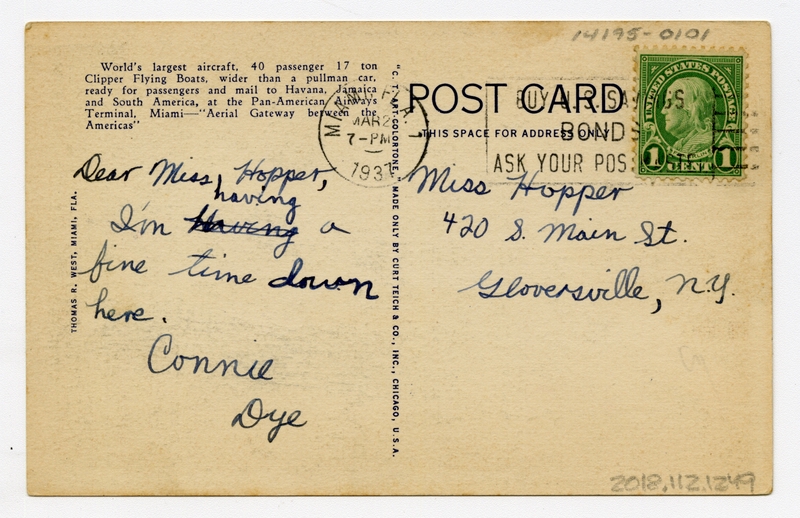 14195-0101
World's largest aircraft, 40 passenger 17 ton
Clipper Flying Boats, wider than a pullman car,
ready for passengers and mail to Havana, Jamaica
and South America, at the Pan-American Airways
Terminal, Miami—"Aerial Gateway between the
Americas"
THOMAS R. WEST, MIAMI, FLA.
Dear Miss Hopper,
having
I'm Having a
fine time down
here.
Connie
Dye
"C. T. ART-COLORTONE," MADE ONLY BY CURT TEICH & CO., INC., CHICAGO, U.S.A.
MIAMI, FLA.
MAR 2
7-PM
1937
POST CARD
THIS SPACE FOR ADDRESS ONLY
BUY U.S. SAVINGS
BONDS
ASK YOUR POS
UNITED STATES POSTAGE
1 CENT 1
Miss Hopper
420 S. Main St.
Gloversville, N.Y.
2018.112.1249